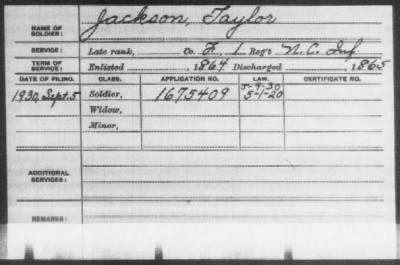 NAME OF SOLDIER: Jackson, Taylor
SERVICE: Late rank, Co. F, 1 Reg't N.C. Inf
TERM OF SERVICE: Enlisted 1864 Discharged 1865
DATE OF FILING. CLASS. APPLICATION NO. LAW. CERTIFICATE NO.
5-9-30
1930, Sept. 5 Soldier, 1675409 5-1-20
Widow,
Minor,
ADDITIONAL SERVICES:
REMARKS: